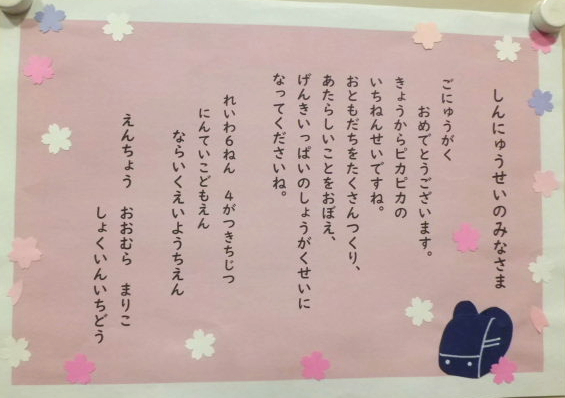 しんにゅうせいのみなさま
ごにゅうがく
おめでとうございます。
きょうからピカピカの
いちねんせいですね。
おともだちをたくさんつくり、
あたらしいことをおぼえ、
げんきいっぱいのしょうがくせいに
なってくださいね。
れいわ6ねん 4がつきちじつ
にんていこどもえん
ならいくえいようちえん
えんちょう おおむら まりこ
しょくいんいちどう